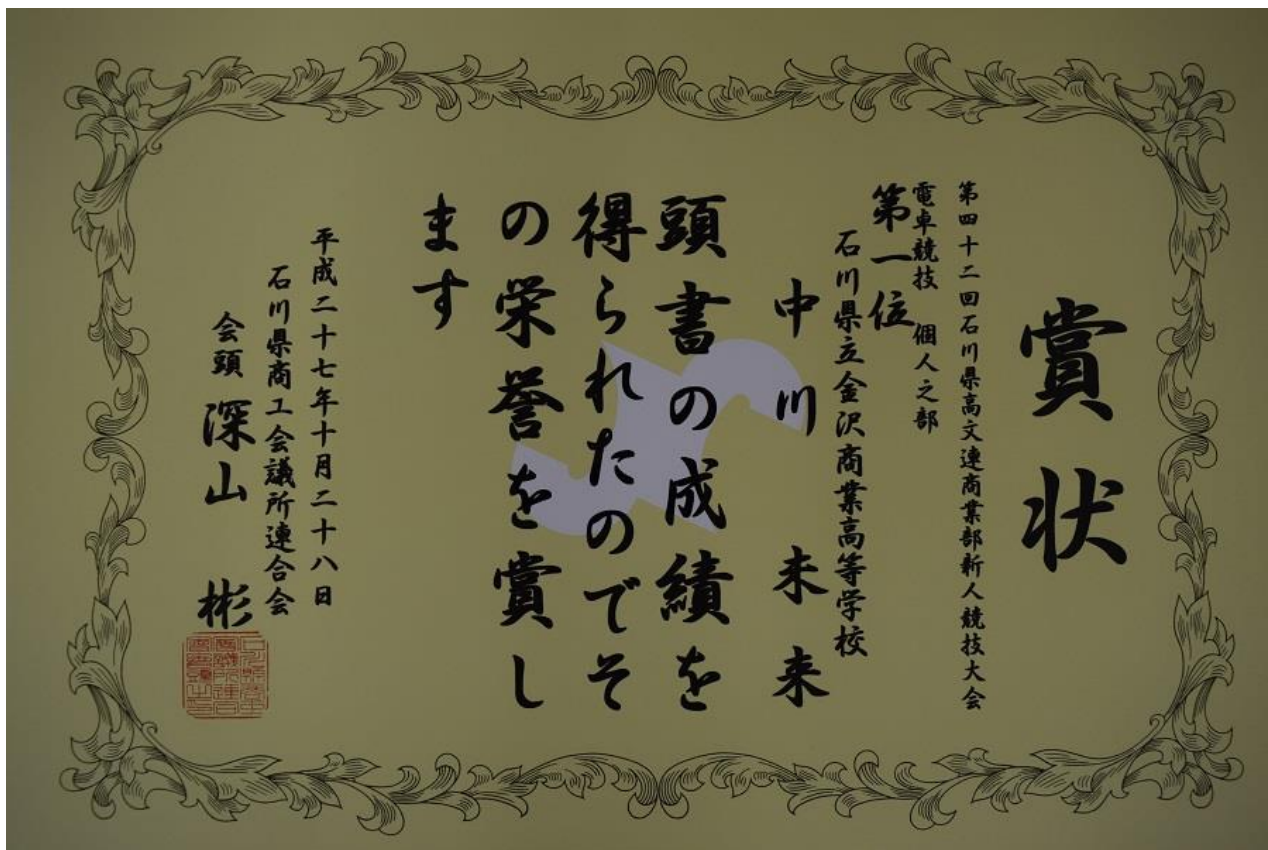 賞状
第四十二回石川県高文連商業部新人競技大会
電卓競技 個人之部
第一位
石川県立金沢商業高等学校
中川未来
頭書の成績を
得られたのでそ
の栄誉を賞し
ます
平成二十七年十月二十八日
石川県商工会議所連合会
会頭 深山 彬